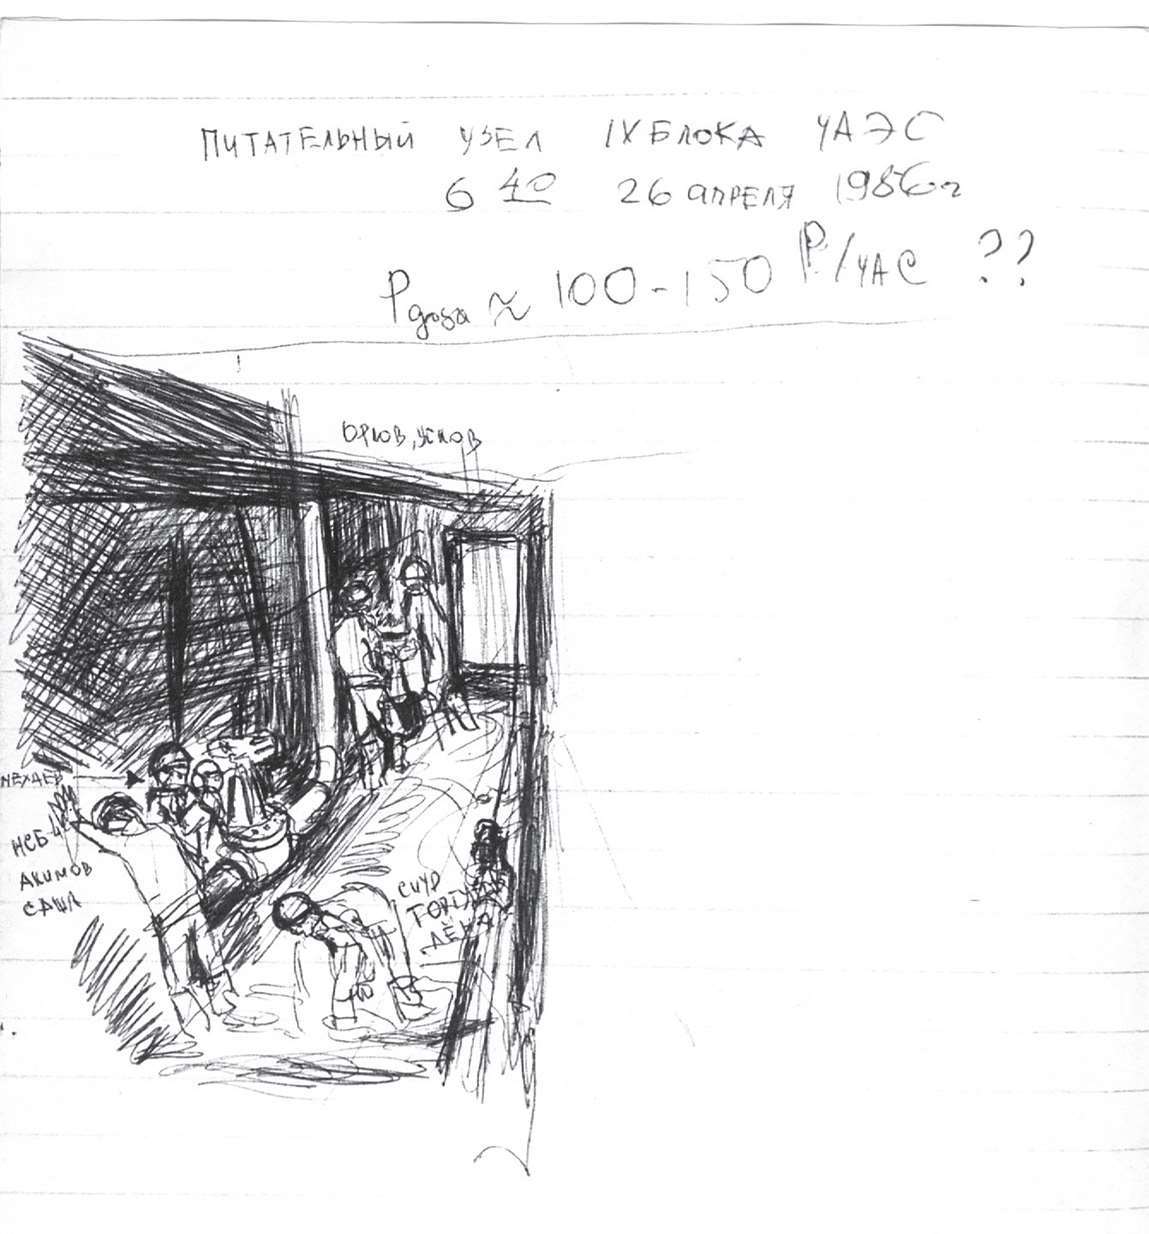 ПИТАТЕЛЬНЫЙ УЗЕЛ IX БЛОКА ЧАЭС
6 40 26 АПРЕЛЯ 1986 г
P доза ≈ 100-150 Р/ЧАС ??
ОРЛОВ, УСКОВ
НЕХАЕВ
НСБ 4
АКИМОВ
САША
СИУР